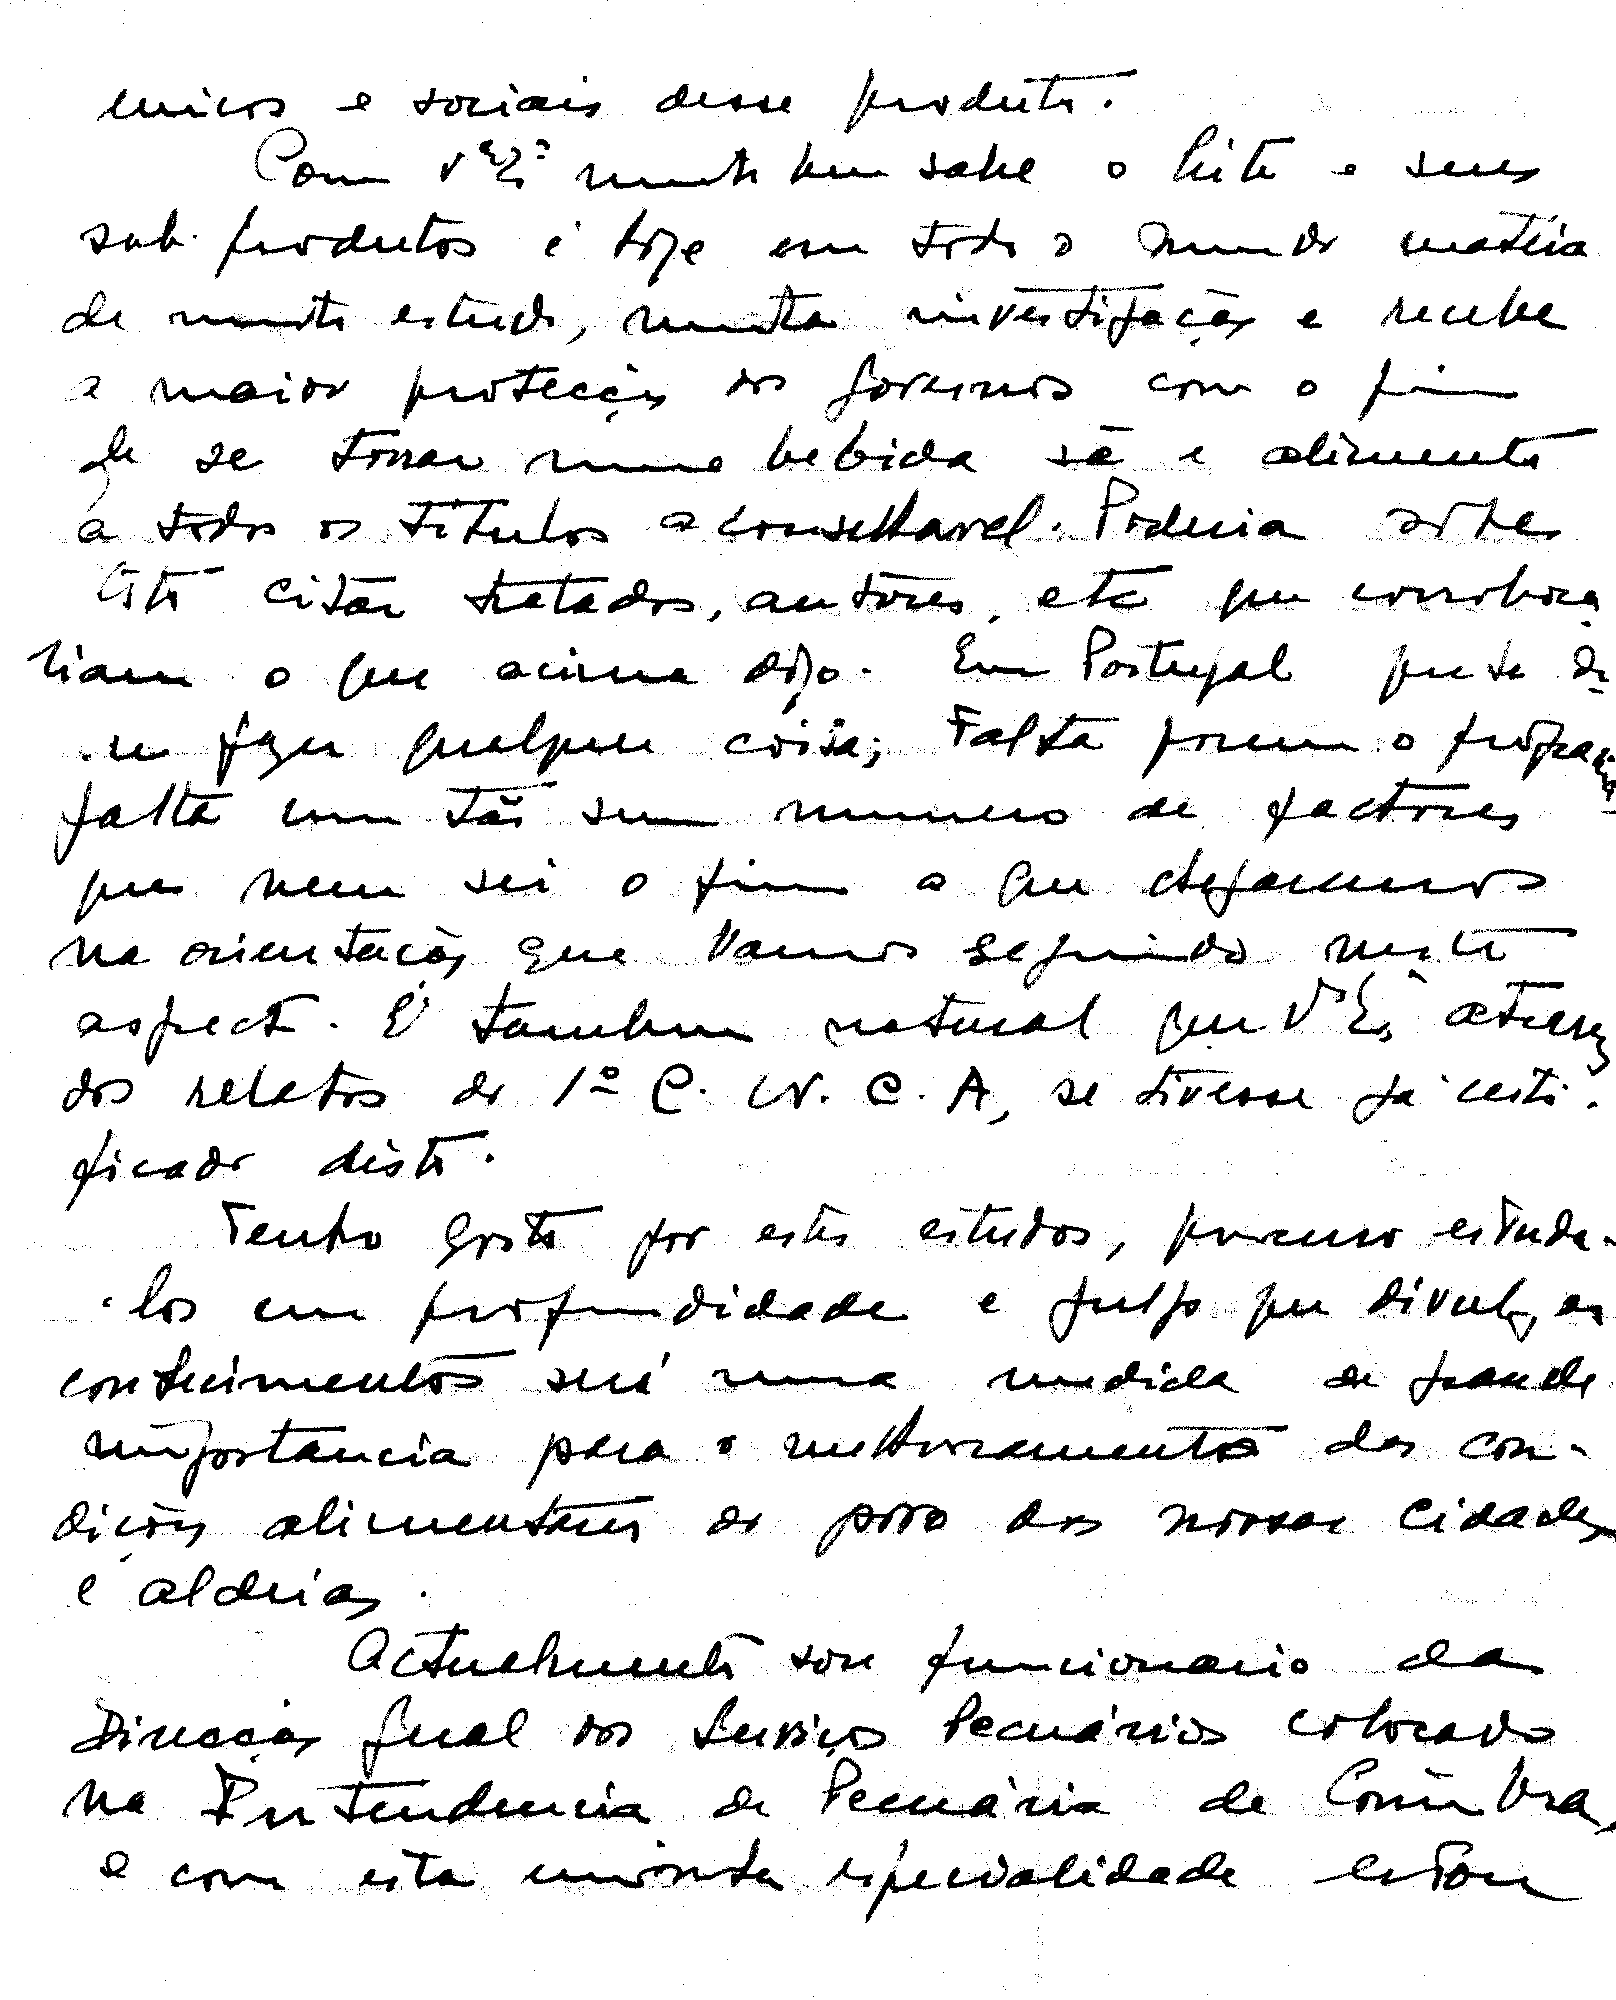 micos e sociais desse produto.
Como V. Exª muito bem sabe o leite e seus
sub-produtos é hoje em todo o mundo matéria
de muito estudo, muita investigação e recebe
a maior protecção dos governos com o fim
de se tornar uma bebida sã e alimento
a todos os titulos aconselhavel. Poderia sobre
isto citar tratados, autores, etc que corrobora-
riam o que acima digo. Em Portugal pretende-
-se fazer qualquer coisa; Falta porem o
falta um tão sem numero de factores
que nem sei o fim a que chegaremos
na orientação que vamos seguindo neste
aspecto. É tambem natural que V. Exª atravez
dos relatos do 1º C. N. C. A, se tivesse já certi-
ficado disto.
Tenho gosto por estes estudos, procuro estuda-
-los em profundidade e julgo que divulgar
conhecimentos será uma medida de grande
importancia para o melhoramento das con-
dições alimentares do povo das nossas cidades
e aldeias.
Actualmente sou funcionario da
Direcção Geral dos Serviços Pecuários colocado
na Intendencia de Pecuária de Coimbra,
e com esta especialidade estou